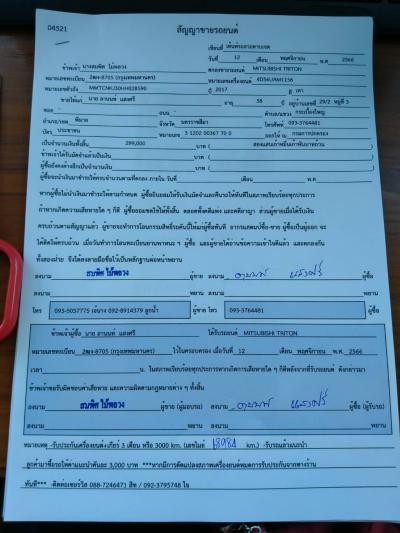 04521
สัญญาขายรถยนต์
เขียนที่ เต้นท์รถสวยตาบเขต
วันที่ 12 เดือน พฤศจิกายน พ.ศ. 2566
ข้าพเจ้า นางสมพิศ ไม้พวง ตกลงขายรถยนต์ MITSUBISHI TRITON
หมายเลขทะเบียน 2ฒฉ-8705 (กรุงเทพมหานคร) หมายเลขเครื่องยนต์ 4D56UAM1156
หมายเลขตัวถัง MMTCNK/30HH028590 ปี 2017 สี เทา
ขายให้แก่ นาย อานนท์ แสงศรี อายุ 58 ปี อยู่บ้านเลขที่ 29/2 หมู่ที่ 3
ซอย ถนน ตำบล/แขวง กระเบื้องใหญ่
อำเภอ/เขต พิมาย จังหวัด นครราชสีมา โทรศัพท์ 093-3764481
บัตร ประชาชน หมายเลข 3 1202 00367 70 0 ออกให้ ณ กรมการปกครอง
เป็นจำนวนเงินทั้งสิ้น 299,000 บาท ( สองแสนเก้าหมื่นเก้าพันบาทถ้วน )
ข้าพเจ้าได้รับมัดจำแล้วเป็นเงิน บาท ( )
ผู้ซื้อยังคงค้างอีกเป็นจำนวนเงิน บาท ( )
ผู้ซื้อจะนำเงินมาชำระให้ครบจำนวนตามที่ตกลง ภายใน วันที่ เดือน พ.ศ.
หากผู้ซื้อไม่นำเงินมาชำระให้ตามกำหนด ผู้ซื้อยินยอมให้ริบเงินมัดจำและคืนรถให้ทันทีในสภาพเรียบร้อยทุกประการ
ถ้าหากเกิดความเสียหายใด ๆ ก็ดี ผู้ซื้อยอมชดใช้ให้ทั้งสิ้น ตลอดทั้งคดีแพ่ง และคดีอาญา ส่วนผู้ขายเมื่อได้รับเงิน
ทั้งสองฝ่าย จึงได้ลงลายมือชื่อไว้เป็นหลักฐานต่อหน้าพยาน
ลงนาม สมพิศ ไม้พวง ผู้ขาย ลงนาม อานนท์ แสงศรี ผู้ซื้อ
ลงนาม พยาน ลงนาม พยาน
โทร 093-5037775 เอนาง 092-8914379 ลูกน้ำ ผู้ขาย โทร 093-3764481 ผู้ซื้อ
ข้าพเจ้าผู้ซื้อ นาย อานนท์ แสงศรี ได้รับรถยนต์ MITSUBISHI TRITON
หมายเลขทะเบียน 2ฒฉ-8705 (กรุงเทพมหานคร) ไว้ในครอบครอง เมื่อวันที่ 12 เดือน พฤศจิกายน พ.ศ. 2566
เวลา น. ในสภาพเรียบร้อยทุกประการหากเกิดการเสียหายใด ๆ ก็ดีหลังจากที่รับรถยนต์ ดังกล่าวมา
ข้าพเจ้าขอรับผิดชอบค่าเสียหาย และความผิดตามกฎหมายต่าง ๆ ทั้งสิ้น
ลงนาม สมพิศ ไม้พวง ผู้ขาย (ผู้มอบรถ) ลงนาม อานนท์ แสงศรี ผู้ซื้อ (ผู้รับรถ)
ลงนาม พยาน ลงนาม พยาน
หมายเหตุ -รับประกันเครื่องยนต์+เกียร์ 3 เดือน หรือ 3000 km. (เลขไมล์ ) -รับรถแล้วแนะนำ
ลูกค้ามาซื้อรถให้ค่าแนะนำคันละ 3,000 บาท ***หากมีการดัดแปลงสภาพเครื่องยนต์หมดการรับประกันจากทางร้าน
ทันที*** -ติดต่อเซอร์วิส 088-7246471 ฮัท / 092-3795748 ใจ